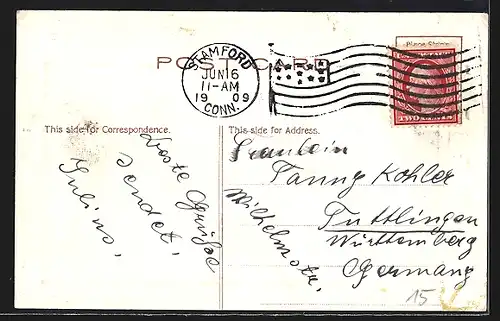 POST CARD
Place Stamp
STAMFORD
JUN 16
11-AM
1909
CONN.
TWO CENTS
This side for Correspondence.
This side for Address.
beste Grüße
sendet
Julius.
Fräulein
Fanny Kohler
Wilhelmstr.
Tuttlingen
Württemberg
Germany
15